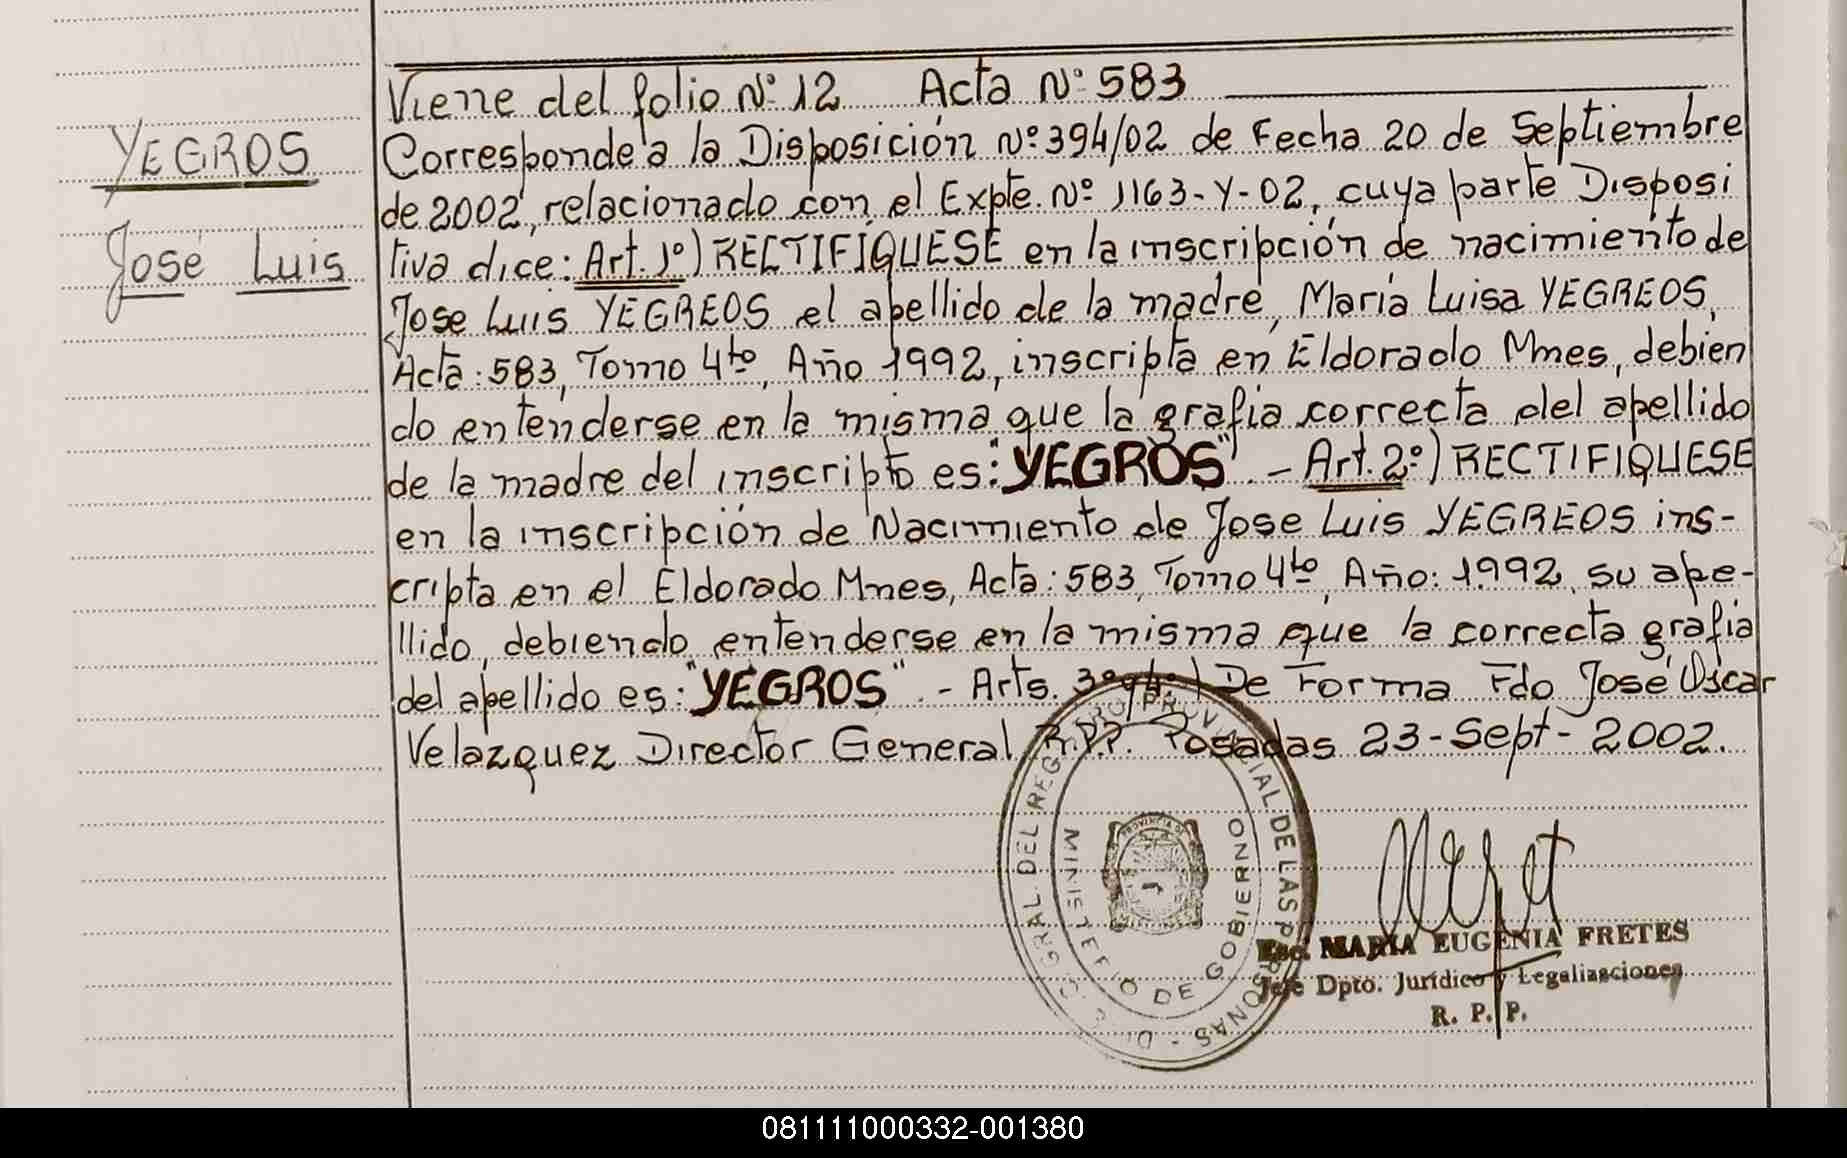 Viene del folio Nº 12 Acta Nº 583
YEGROS
José Luis
Corresponde a la Disposición Nº 394/02 de Fecha 20 de Septiembre
de 2002, relacionado con el Expte. Nº 1163-Y-02, cuya parte Disposi
tiva dice: Art. 1º) RECTIFÍQUESE en la inscripción de nacimiento de
Jose Luis YEGREOS el apellido de la madre, María Luisa YEGREOS,
Acta: 583, Tomo 4to, Año 1992, inscripta en Eldorado Mnes, debien
do entenderse en la misma que la grafia correcta del apellido
de la madre del inscripto es: "YEGROS". - Art. 2º) RECTIFIQUESE
en la inscripción de Nacimiento de Jose Luis YEGREOS ins-
cripta en el Eldorado Mnes, Acta: 583, Tomo 4to, Año: 1992, su ape-
llido, debiendo entenderse en la misma que la correcta grafia
del apellido es: "YEGROS". - Arts. 3º y 4º) De Forma Fdo José Oscar
Velazquez Director General R.P.P. Posadas 23-Sept-2002.
GRAL DEL REGISTRO PROVINCIAL DE LAS PERSONAS
MINISTERIO DE GOBIERNO
PROVINCIA DE
MISIONES
Esc. MARIA EUGENIA FRETES
Jefe Dpto. Jurídico y Legalizaciones
R. P. P.
081111000332-001380